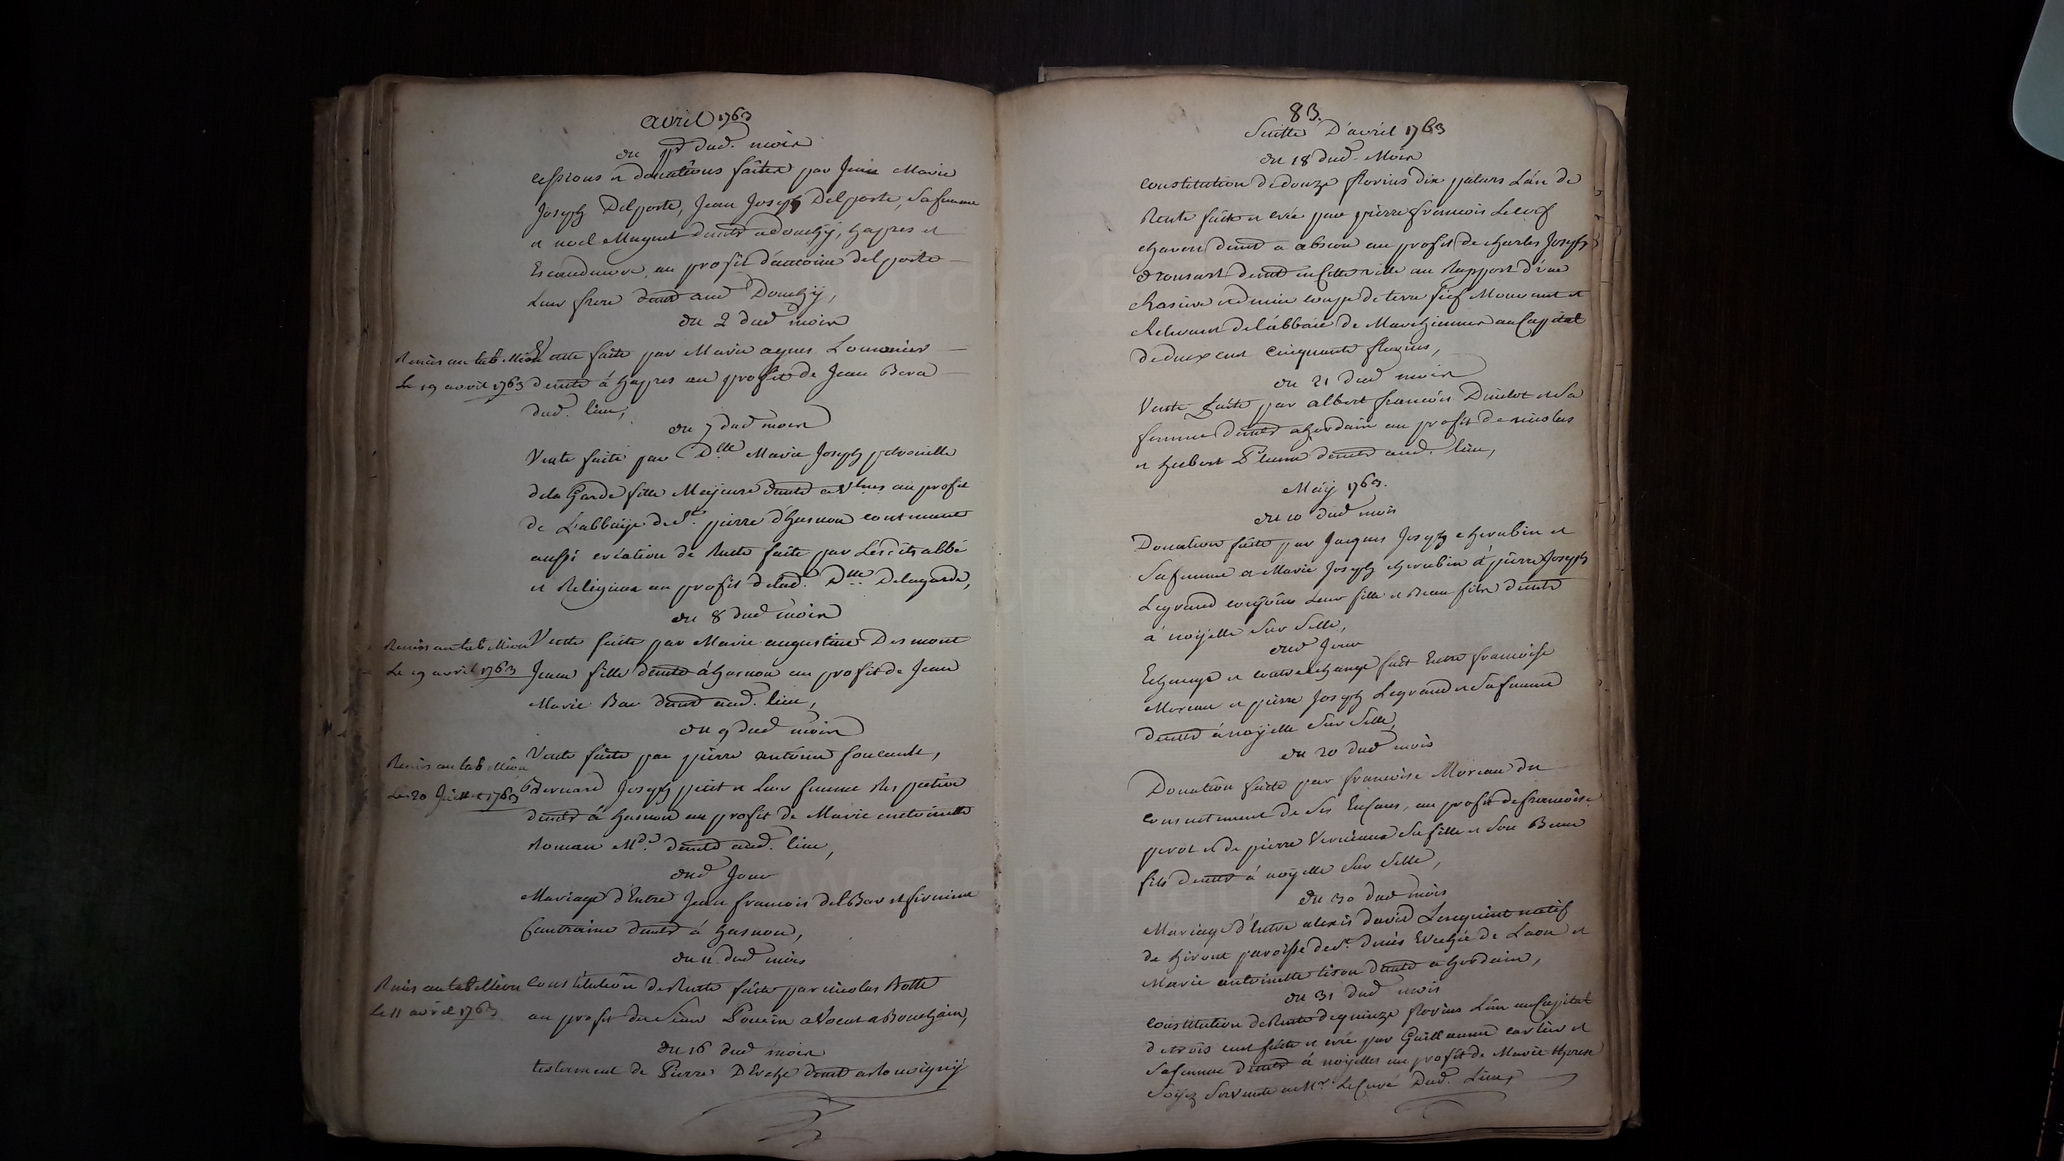 avril 1763
du 1er dud. mois
cessions et donations faites par Jean Marie
Joseph Delporte, Jean Joseph Delporte, sa femme
et noel Magnet demts a douchy, haspres et
Escaudœuvre, au profit d'antoine delporte
leur frere demt aud Douchy,
du 2 dud mois
Remis au tabellion
le 19 avril 1763
Vente faite par Marie agnes Lomonier
demte à haspres au profit de Jean Bera
dud. lieu,
du 7 dud mois
Vente faite par Dlle Marie Joseph petronille
dela Garde fille Majeure demte a Vlnes au profit
de L'abbaÿe de St. pierre d'hasnon contenant
aussi création de Rente faite par Lesdits abbé
et Religieux au profit de lad. Dlle Delagarde,
du 8 dud mois
Remis au tabellion
Le 19 avril 1763
Vente faite par Marie augustine Desmont
Jeune fille demte à hasnon au profit de Jean
Marie Bac demt aud. lieu,
du 9 dud mois
Remis au tabellion
Le 20 Juillet 1763
Vente faite par pierre antoine foucault,
Bernard Joseph petit et Leur femme
demts à hasnon au profit de Marie antoinette
Roman Mde. demte aud. lieu,
dud Jour
Mariage d'Entre Jean francois delBar et firmine
Cantraine demts à hasnon,
du 11 dud mois
Remis au tabellion
le 11 avril 1763
Constitution de Rente faite par nicolas Botte
au profit du Sieur Poucin avocat a Bouchain,
du 16 dud mois
testament de Pierre demt a
83.
Suitte D'avril 1763
du 18 dud. Mois
Constitution de douze florins dix patars L'an de
Rente faite et crée par pierre francois
charon demt a abscon au profit de charles Joseph
demt en cette ville au Rapport d'une
Rasiere et demie coupe de terre fief Mouvant et
Relevant de L'abbaie de Marchiennes au Capital
de deux cent Cinquante florins,
du 21 dud mois
Vente faite par albert francois et Sa
femme demts a hordain au profit de nicolas
et hubert demts aud. lieu,
Maÿ 1763.
du 10 dud mois
Donation faite par Jacques Joseph cherubin et
Sa femme a Marie Joseph cherubin et pierre Joseph
Legrand conjoins Leur fille et Beau fils demts
à noÿelle Sur Selle,
dud Jour
Echange et contrechange fait Entre francoise
Moreau et pierre Joseph Legrand et Sa femme
demts à noÿelle Sur Selle,
du 20 dud mois
Donation faite par francoise Moreau du
consentement de Ses Enfans, au profit de francoise
perot et de pierre Sa fille et Son Beau
fils demts à noÿelle Sur Selle,
du 30 dud mois
Mariage d'Entre alexis david Lesequint natif
de hiront paroisse de St. denis Evechée de Laon et
Marie antoinette tison demte a hordain,
du 31 dud mois
Constitution de Rente de quinze florins L'an au Capital
de trois cent faite et crée par Guillaume cartier et
Sa femme demts à noÿelles au profit de Marie therese
Soyez Servante a Mr. Le Curé Dud. Lieu,